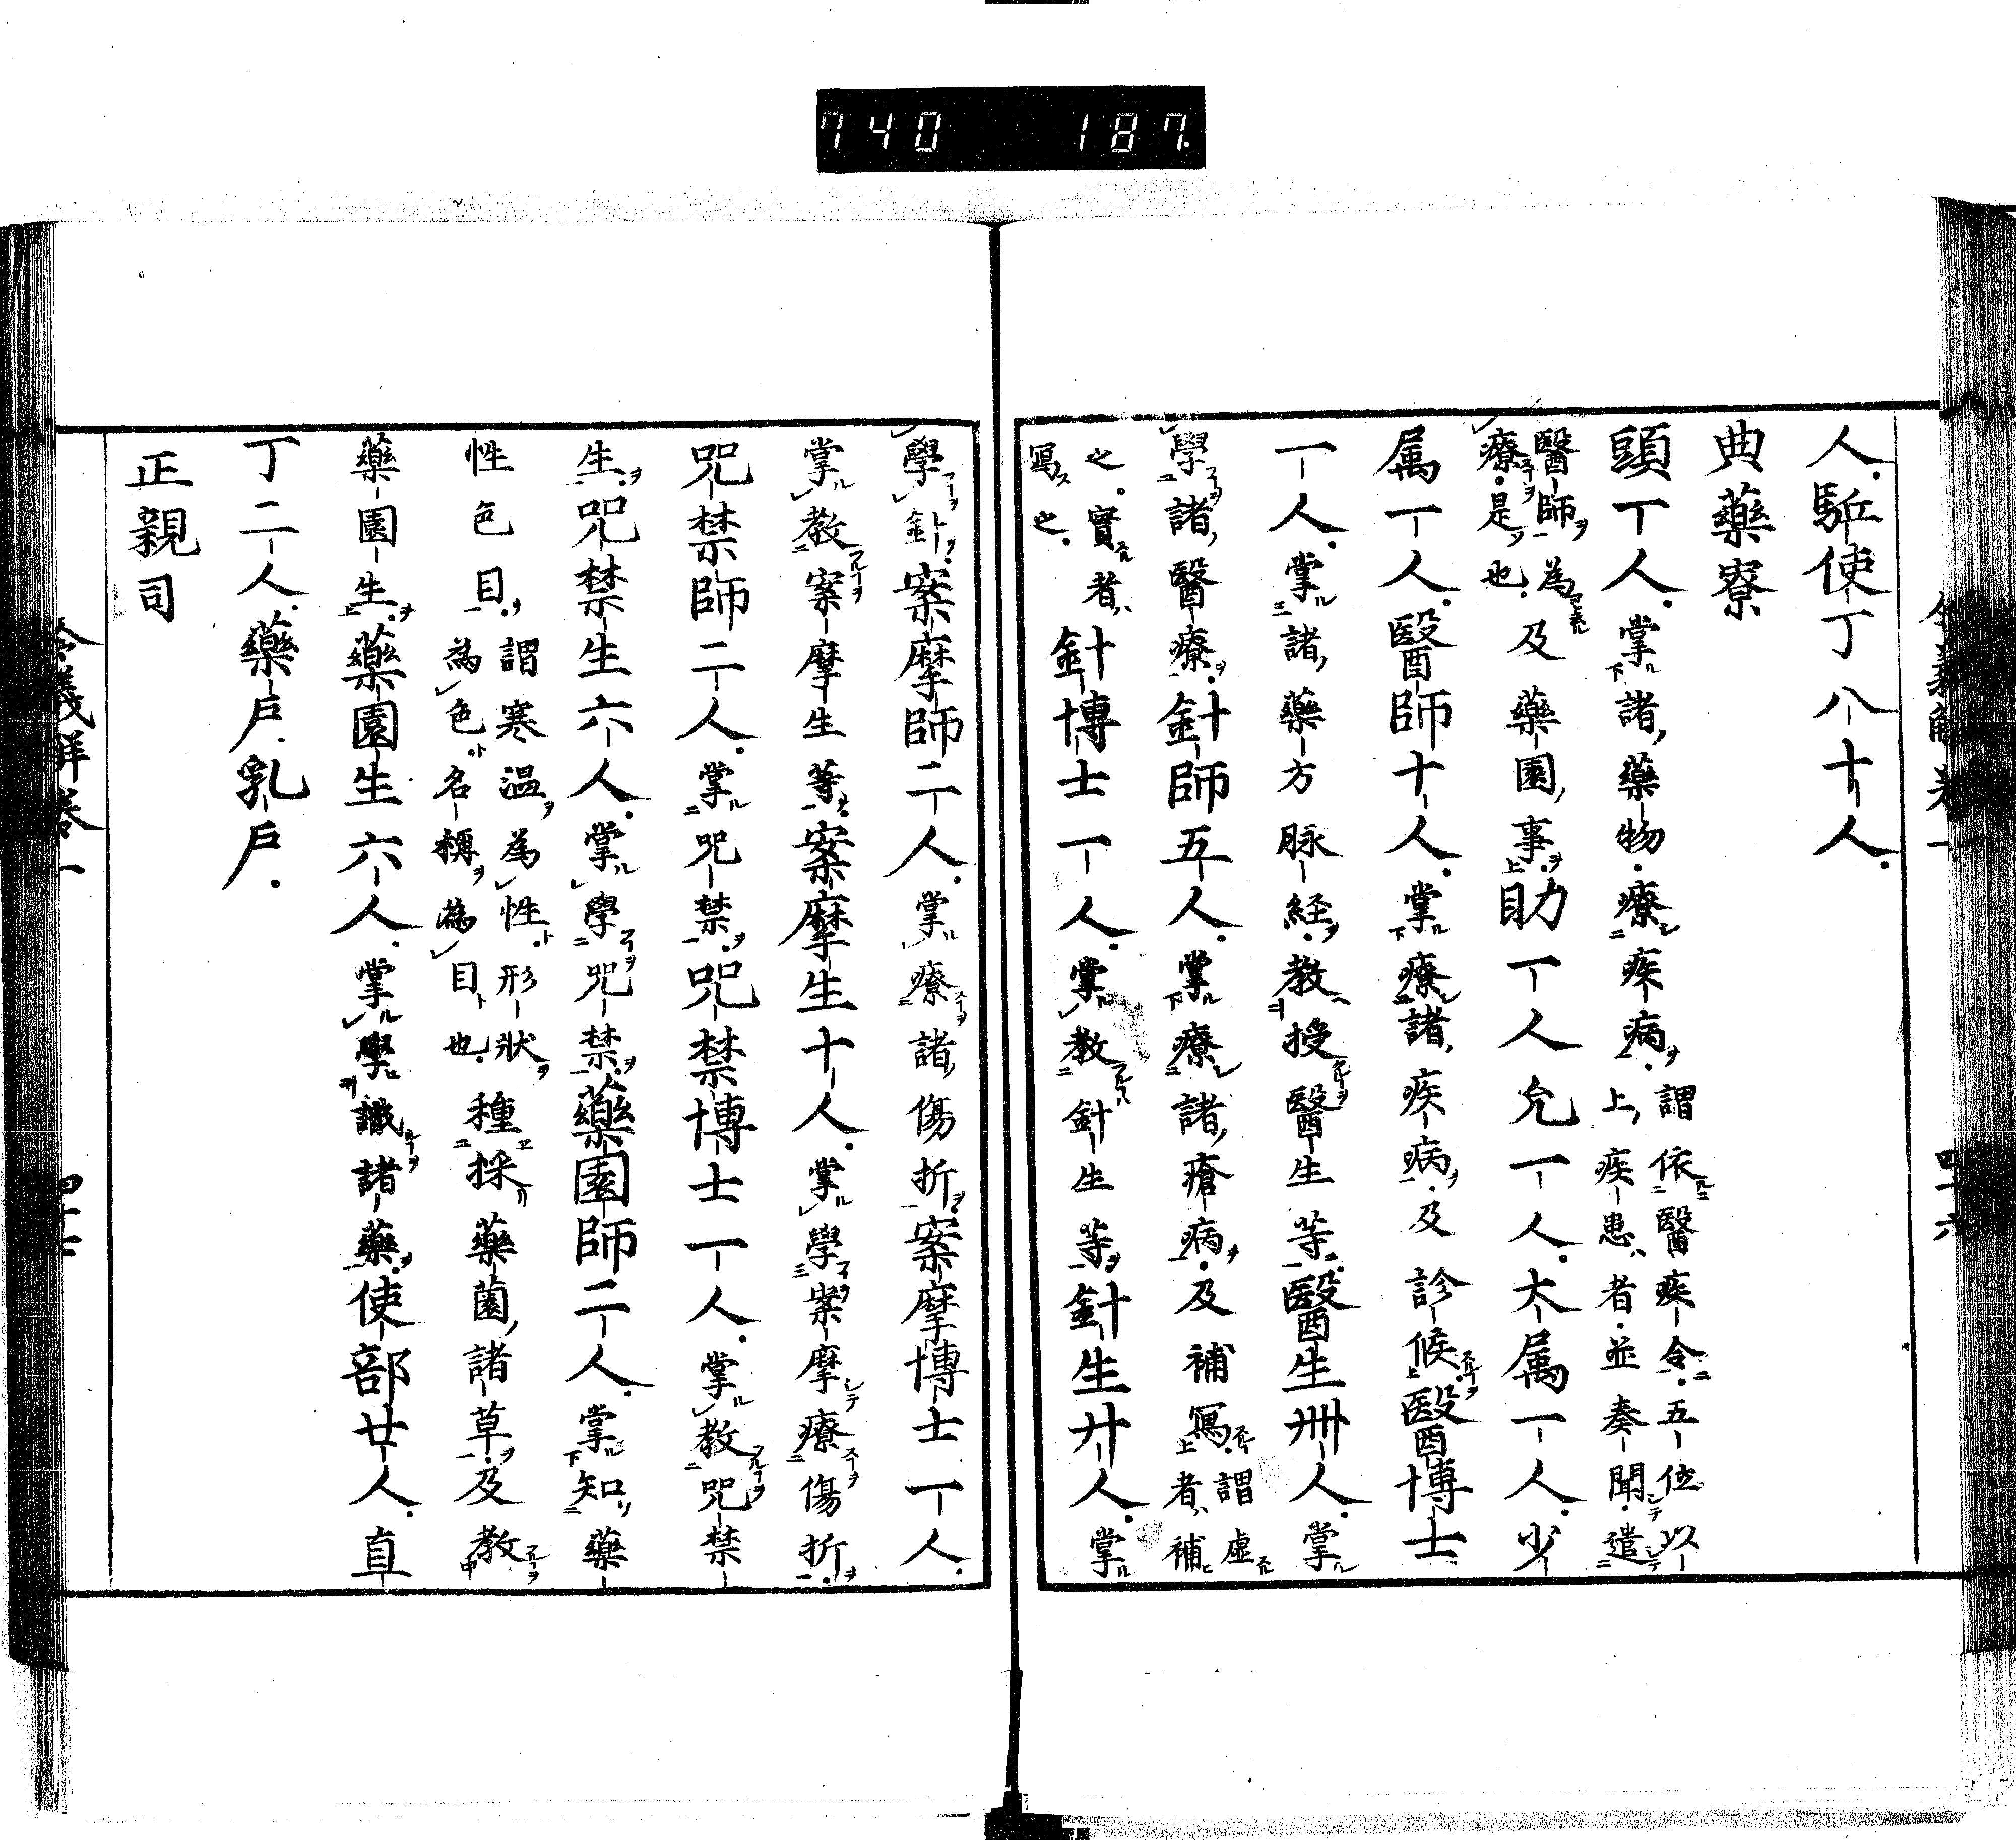 740 187.
人駈使丁八十人
典藥寮
頭一人掌諸藥物療疾病謂依醫疾令五位以
上疾患者並奏聞遣
醫師為
療是也及藥園事助一人允一人大属一人少
属一人醫師十人掌療諸疾病及診候醫博士
一人掌諸藥方脉経教授醫生等醫生卌人掌
學諸醫療針師五人掌療諸瘡病及補寫謂虛
者補
也實者
寫也針博士一人掌教針生等針生廿人掌
學針案摩師二人掌療諸傷折案摩博士一人
掌教案摩生等案摩生十人掌學案摩療傷折
咒禁師二人掌咒禁咒禁博士一人掌教咒禁
生咒禁生六人掌學咒禁藥園師二人掌知藥
性色目謂寒温為性形狀
為色名稱為目也種採藥園諸草及教
藥園生藥園生六人掌學識諸藥使部廿人直
丁二人藥戶乳戶
正親司
令義解卷一